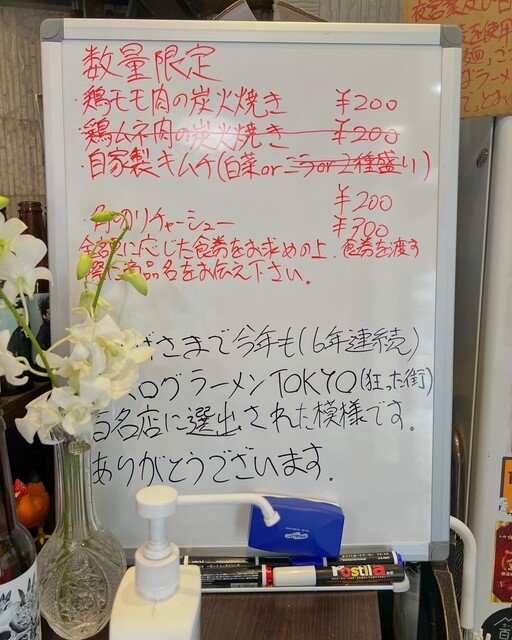 数量限定
・鶏モモ肉の炭火焼き ¥200
・鶏ムネ肉の炭火焼き ¥200
・自家製キムチ(白菜orニラor2種盛り)
¥200
チャーシュー ¥300
に応じた食券をお求めの上、食券を渡す
際に商品名をお伝え下さい。
げさまで今年も(6年連続)
ログラーメンTOKYO(狂った街)
百名店に選出された模様です。
ありがとうございます。